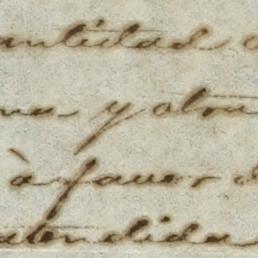 antidad
y otra
à favor d
atendida